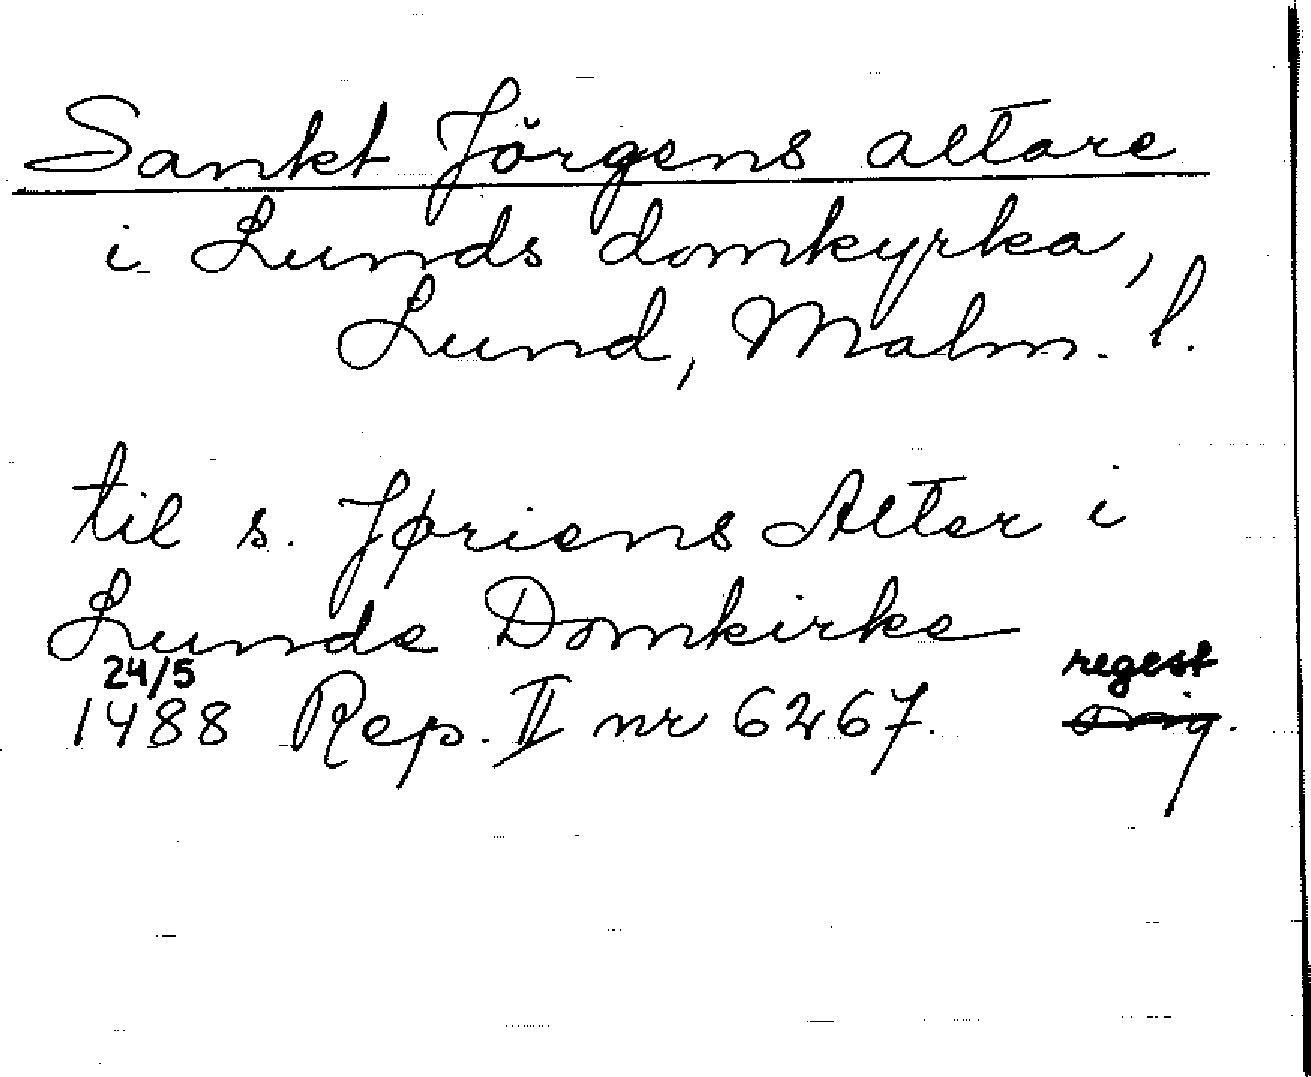 Sankt Jörgens altare
i Lunds domkyrka,
Lund, Malm. l.
til s. Jøriens Alter i
Lunde Domkirke
24/5 regest
1488 Rep. II nr 6267. Orig.